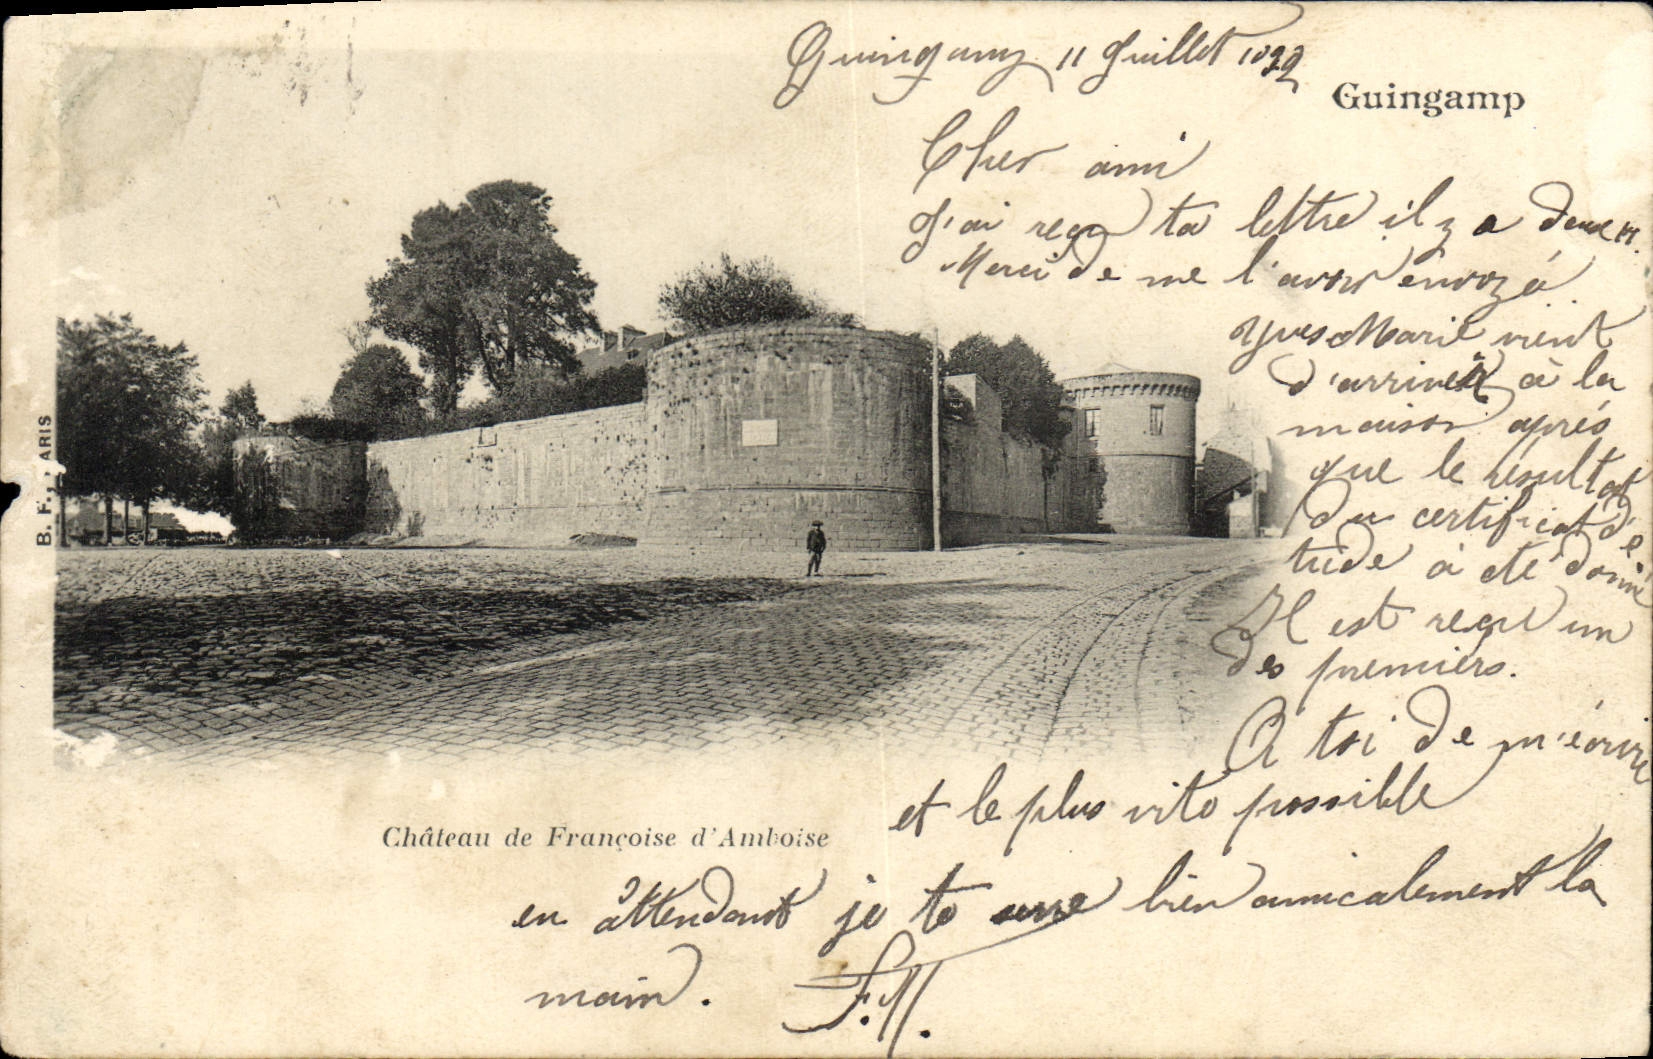 Guingamp 11 Juillet 1899
Guingamp
Cher ami
J'ai reçu ta lettre il y a deux
Merci de me l'avoir envoyé
Yves Marie vient
d'arriver à la
maison après
que le résultat
du certificat d'é
tude a été donné
Il est reçu un
des premiers.
A toi de m'écrire
et le plus vite possible
en attendant je te serre bien amicalement la
main.
F.M.
Château de Françoise d'Amboise
B. F., PARIS